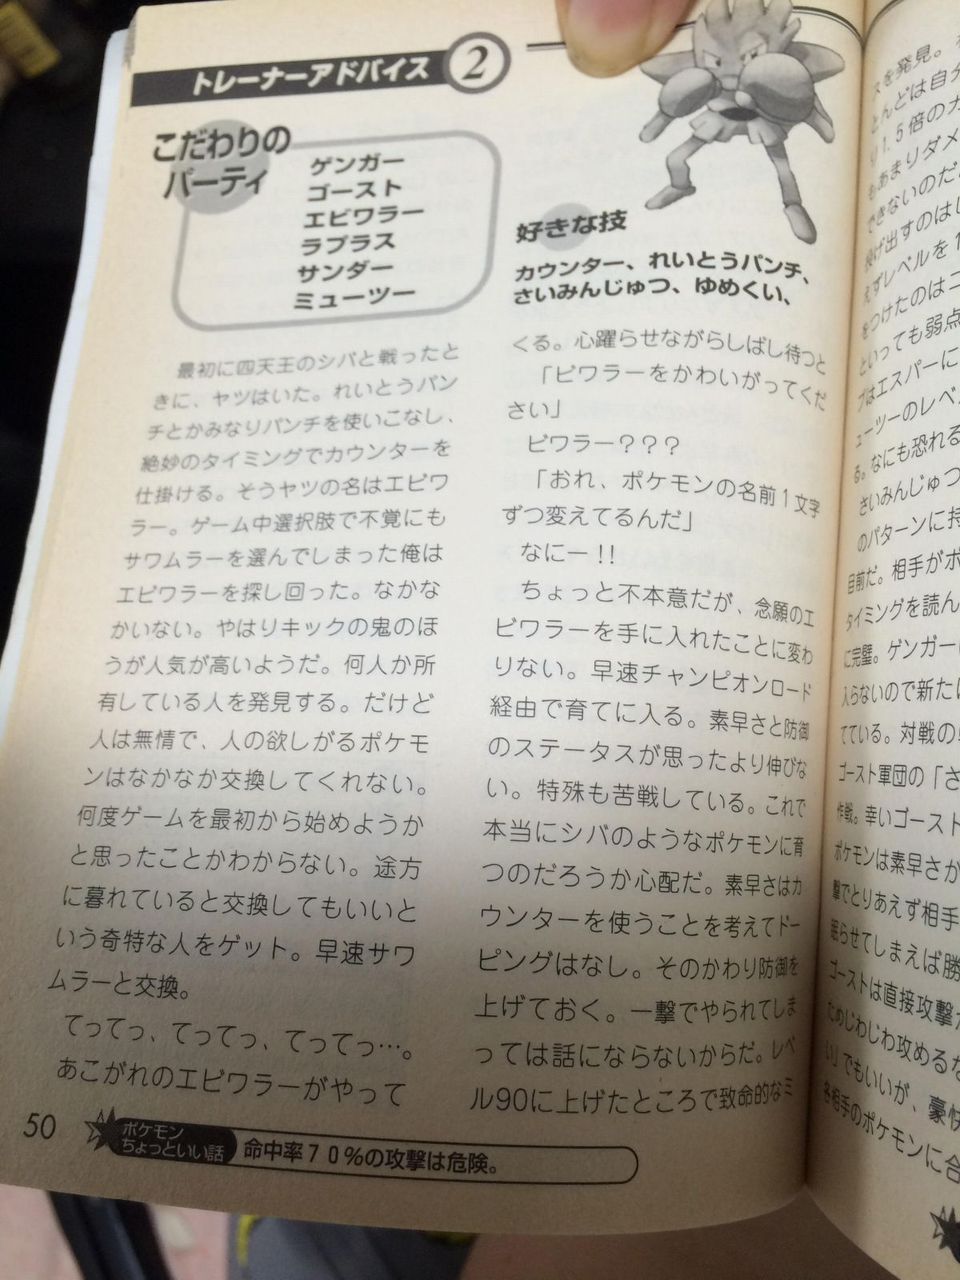 トレーナーアドバイス 2
こだわりの
パーティ
ゲンガー
ゴースト
エビワラー
ラプラス
サンダー
ミューツー
最初に四天王のシバと戦ったと
きに、ヤツはいた。れいとうパン
チとかみなりパンチを使いこなし、
絶妙のタイミングでカウンターを
仕掛ける。そうヤツの名はエビワ
ラー。ゲーム中選択肢で不覚にも
サワムラーを選んでしまった俺は
エビワラーを探し回った。なかな
かいない。やはりキックの鬼のほ
うが人気が高いようだ。何人か所
有している人を発見する。だけど
人は無情で、人の欲しがるポケモ
ンはなかなか交換してくれない。
何度ゲームを最初から始めようか
と思ったことかわからない。途方
に暮れていると交換してもいいと
いう奇特な人をゲット。早速サワ
ムラーと交換。
てってっ、てってっ、てってっ…。
あこがれのエビワラーがやって
好きな技
カウンター、れいとうパンチ、
さいみんじゅつ、ゆめくい、
くる。心躍らせながらしばし待つと
「ビワラーをかわいがってくだ
さい」
ビワラー？？？
「おれ、ポケモンの名前１文字
ずつ変えてるんだ」
なにー！！
ちょっと不本意だが、念願のエ
ビワラーを手に入れたことに変わ
りない。早速チャンピオンロード
経由で育てに入る。素早さと防御
のステータスが思ったより伸びな
い。特殊も苦戦している。これで
本当にシバのようなポケモンに育
つのだろうか心配だ。素早さはカ
ウンターを使うことを考えてドー
ピングはなし。そのかわり防御を
上げておく。一撃でやられてしま
っては話にならないからだ。レベ
ル90に上げたところで致命的なミ
50
ポケモン
ちょっといい話
命中率７０％の攻撃は危険。
スを発見。
とんどは自分
り1.5倍のカ
もあまりダメ
できないのだ
投げ出すのはし
えずレベルを1
をつけたのはニ
といっても弱点
プはエスパーに
ューツーのレベ
る。なにも恐れる
さいみんじゅつ
のパターンに持
目前だ。相手がポ
タイミングを読ん
に完璧。ゲンガー
入らないので新たに
てている。対戦の
ゴースト軍団の「さ
作戦。幸いゴースト
ポケモンは素早さが
撃でとりあえず相手
眠らせてしまえば勝
ゴーストは直接攻撃が
ためじわじわ攻めるな
い」でもいいが、豪快
各相手のポケモンに合